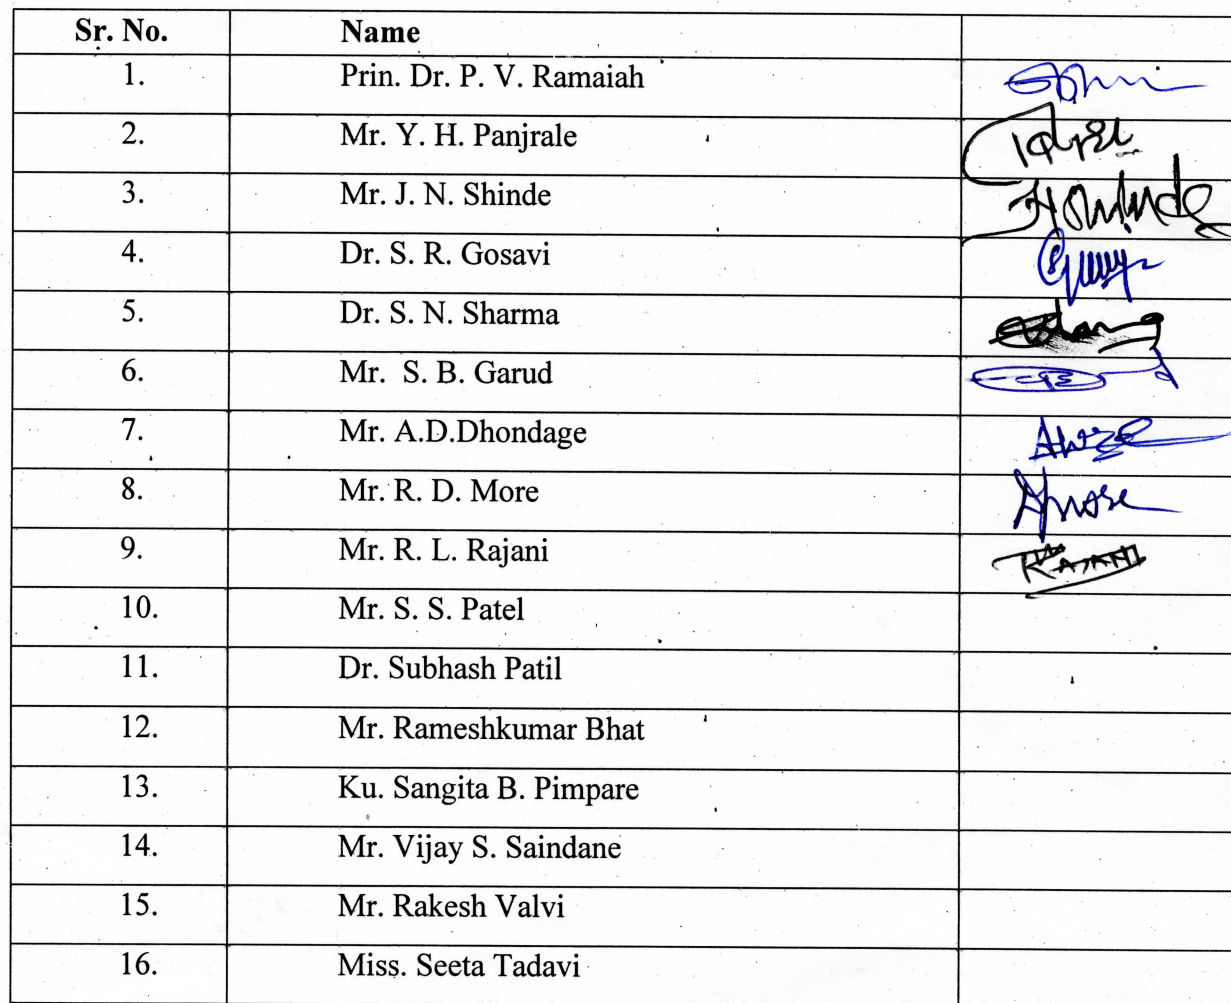 Sr. No. Name
1. Prin. Dr. P. V. Ramaiah
2. Mr. Y. H. Panjrale
3. Mr. J. N. Shinde
4. Dr. S. R. Gosavi
5. Dr. S. N. Sharma
6. Mr. S. B. Garud
7. Mr. A.D.Dhondage
8. Mr. R. D. More
9. Mr. R. L. Rajani RAJANI
10. Mr. S. S. Patel
11. Dr. Subhash Patil
12. Mr. Rameshkumar Bhat
13. Ku. Sangita B. Pimpare
14. Mr. Vijay S. Saindane
15. Mr. Rakesh Valvi
16. Miss. Seeta Tadavi